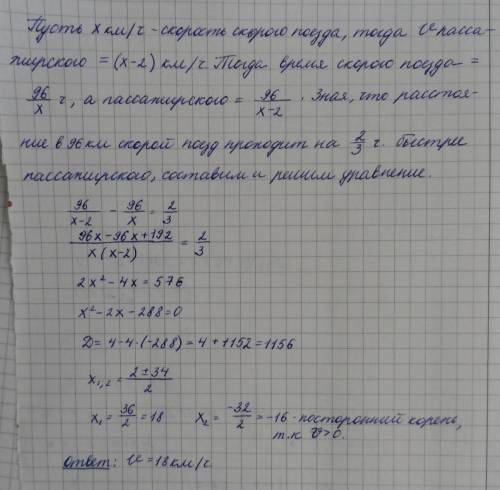 Пусть x км/ч - скорость скорого поезда, тогда v пасса-
жирского = (x-2) км/ч. Тогда время скорого поезда =
96/x ч, а пассажирского = 96/(x-2). Зная, что расстоя-
ние в 96 км скорой поезд проходит на 2/3 ч. быстрее
пассажирского, составим и решим уравнение.
96/(x-2) - 96/x = 2/3
(96x-96x+192)/(x(x-2)) = 2/3
2x²-4x=576
x²-2x-288=0
D=4-4·(-288)=4+1152=1156
x₁,₂=(2±34)/2
x₁=36/2=18 x₂=-32/2=-16 - посторонний корень,
т.к v>0.
ответ: v=18км/ч.